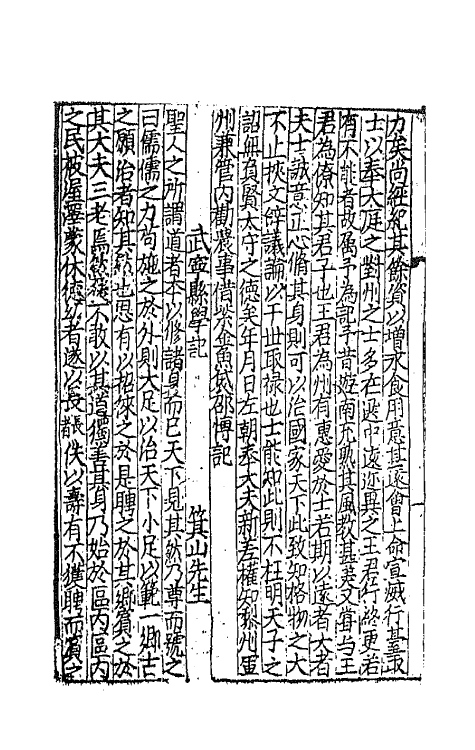 力矣尚經紀其餘貲以增水食用意甚遠會上命宣撫行甚取
士以奉大庭之對州之士多在選中遠迩異之王君行終更若
有不能者故屬予為記予昔遊南充熟其風教甚美又嘗与王
君為僚知其君子也王君為州有惠愛於士若期以遠者大者
夫士誠意正心脩其身則可以治國家天下此致知格物之大
不止挾文辭議論以干世取祿也士能知此則不枉明天子之
詔無負賢太守之德矣年月日左朝奉大夫新差權知黎州軍
州兼管內勸農事借紫金魚袋邵博記
武寧縣學記 箕山先生
聖人之所謂道者本以修諸身而已天下見其然乃尊而號之
曰儒儒之力尚施之於外則大足以治天下小足以範一鄉古
之願治者知其然也思有以招徠之於是聘之於其鄉賓之於
其大夫三老焉然後不敢以其道獨善其身乃始於區內區內
之民被渥澤蒙休德幼者遂以長長者佚以壽有不獲聘而賓